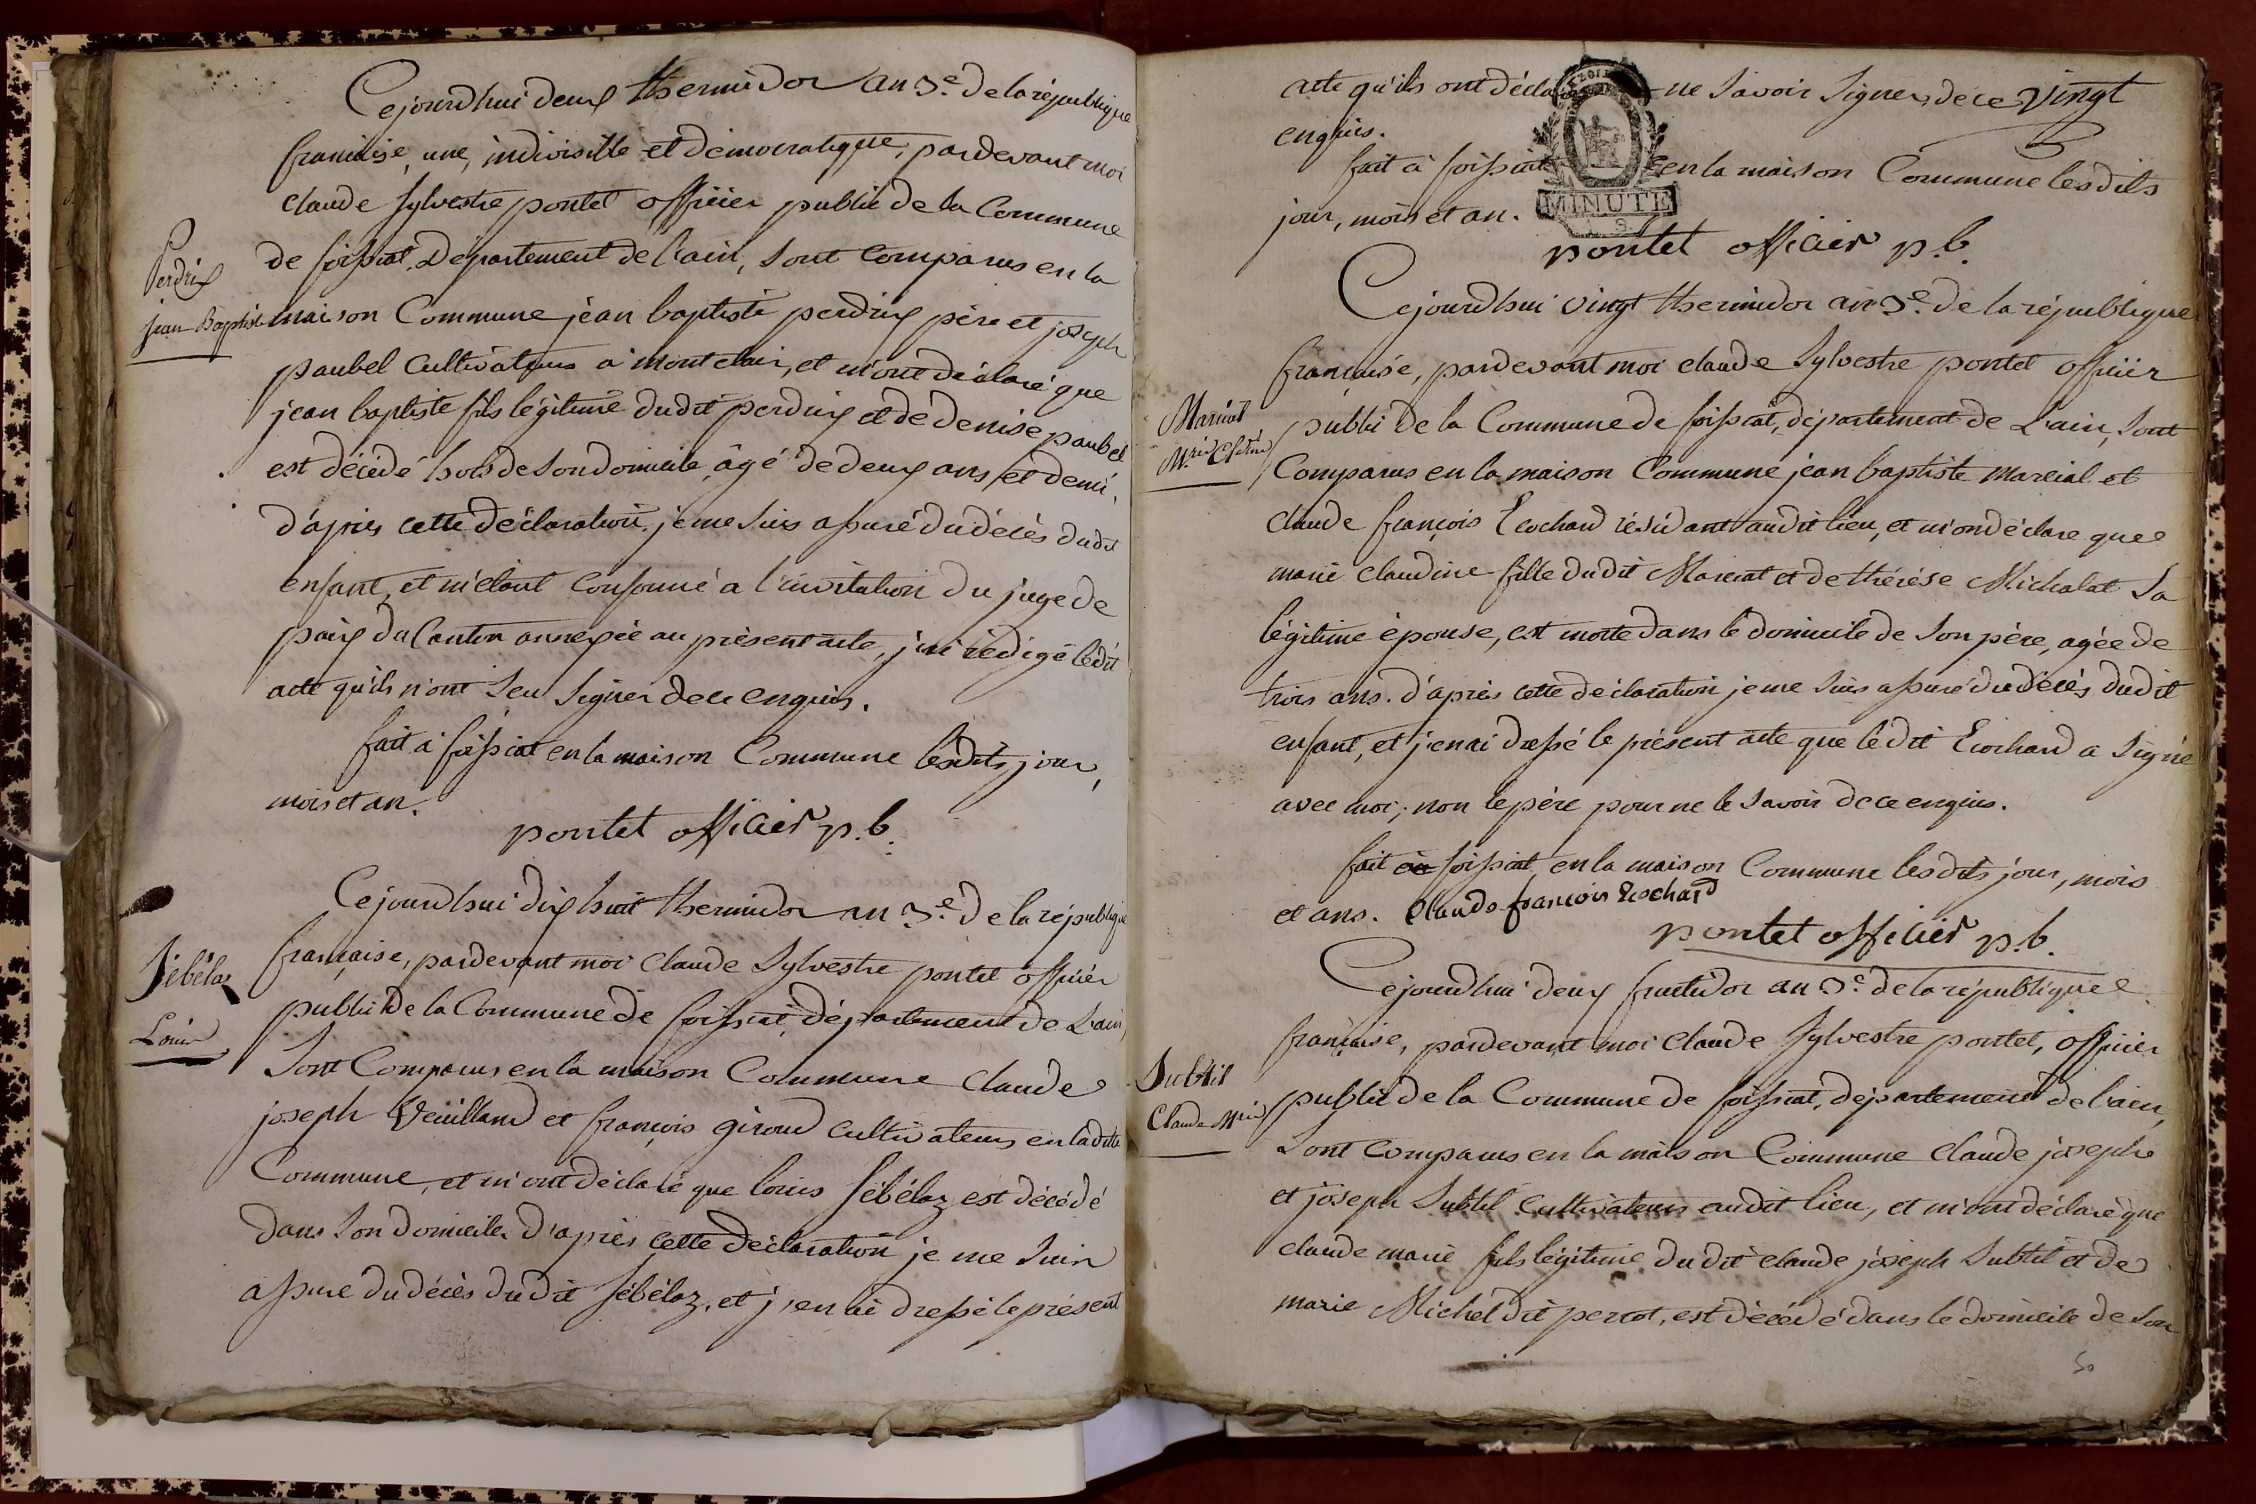 Cejourdhui deux thermidor an 3e. de la république
francaise, une, indivisible et démocratique, pardevant moi
claude Sylvestre pontet officier public de la Commune
de foissiat, Département de l'ain, Sont Comparus en la
Perdrix
Jean Baptist
maison Commune jean baptiste perdrix père et joseph
paubel Cultivateurs a montclair, et m'ont déclaré que
jean baptiste fils légitime dudit perdrix et de denise paubel
est décédé hors de Son domicile, âgé de deux ans et demi.
d'après cette déclaration, je me Suis assuré du décès dudit
enfant, et m'étant Conformé a l'invitation du juge de
paix du Canton annexée au présent acte, j'ai rédigé ledit
acte qu'ils n'ont Seu Signer de ce enquis.
fait à foissiat en la maison Commune lesdits jour,
mois et an.
pontet officier p.b.
Cejourdhui dix huit thermidor an 3e. de la république
française, pardevant moi Claude Sylvestre pontet officier
Sébélaz
Louis
public de la Commune de foissiat, département de L'ain,
Sont Comparus en la maison Commune Claude
joseph Veuilland et françois giroud cultivateurs en ladite
Commune, et m'ont déclaré que louis Sébélaz est décédé
dans Son domicile. d'après cette déclaration je me Suis
assuré du décès dudit Sébélaz, et j'en ai dressé le présent
acte qu'ils ont ne Savoir Signer, de ce vingt
enquis.
fait à foissiat en la maison Commune lesdits
jour, mois et an.
MINUTE
pontet officier p.b.
Cejourdhui vingt thermidor an 3e. de la république
française, pardevant moi claude Sylvestre pontet officier
Marcial
Mrie Cldine
public de la Commune de foissiat, département de L'ain, Sont
Comparus en la maison Commune jean baptiste marcial et
Claude françois Ecochard résidant audit lieu, et m'on déclare que
marie Claudine fille dudit Marcial et de thérése Michalat Sa
légitime épouse, est morte dans le domicile de Son père, agée de
trois ans. d'après cette déclaration je me Suis assuré du décès dudit
enfant, et j'en ai dressé le présent acte que ledit Ecochard a Signé
avec moi; non le père pour ne le Savoir de ce enquis.
fait foissiat, en la maison Commune lesdits jour, mois
et ans. Claude françois Ecochard
pontet officier p.b.
Cejourdhui deux fructidor an 3e. de la république
française, pardevant moi Claude Sylvestre pontet, officier
Subtil
Claude Mrie
public de la Commune de foissiat, département de l'ain,
Sont comparus en la maison Commune Claude joseph
et joseph Subtil Cultivateurs audit lieu, et m'ont déclaré que
claude marie fils légitime dudit claude joseph Subtil et de
marie Michel dit perrot, est décédé dans le domicile de Son
50